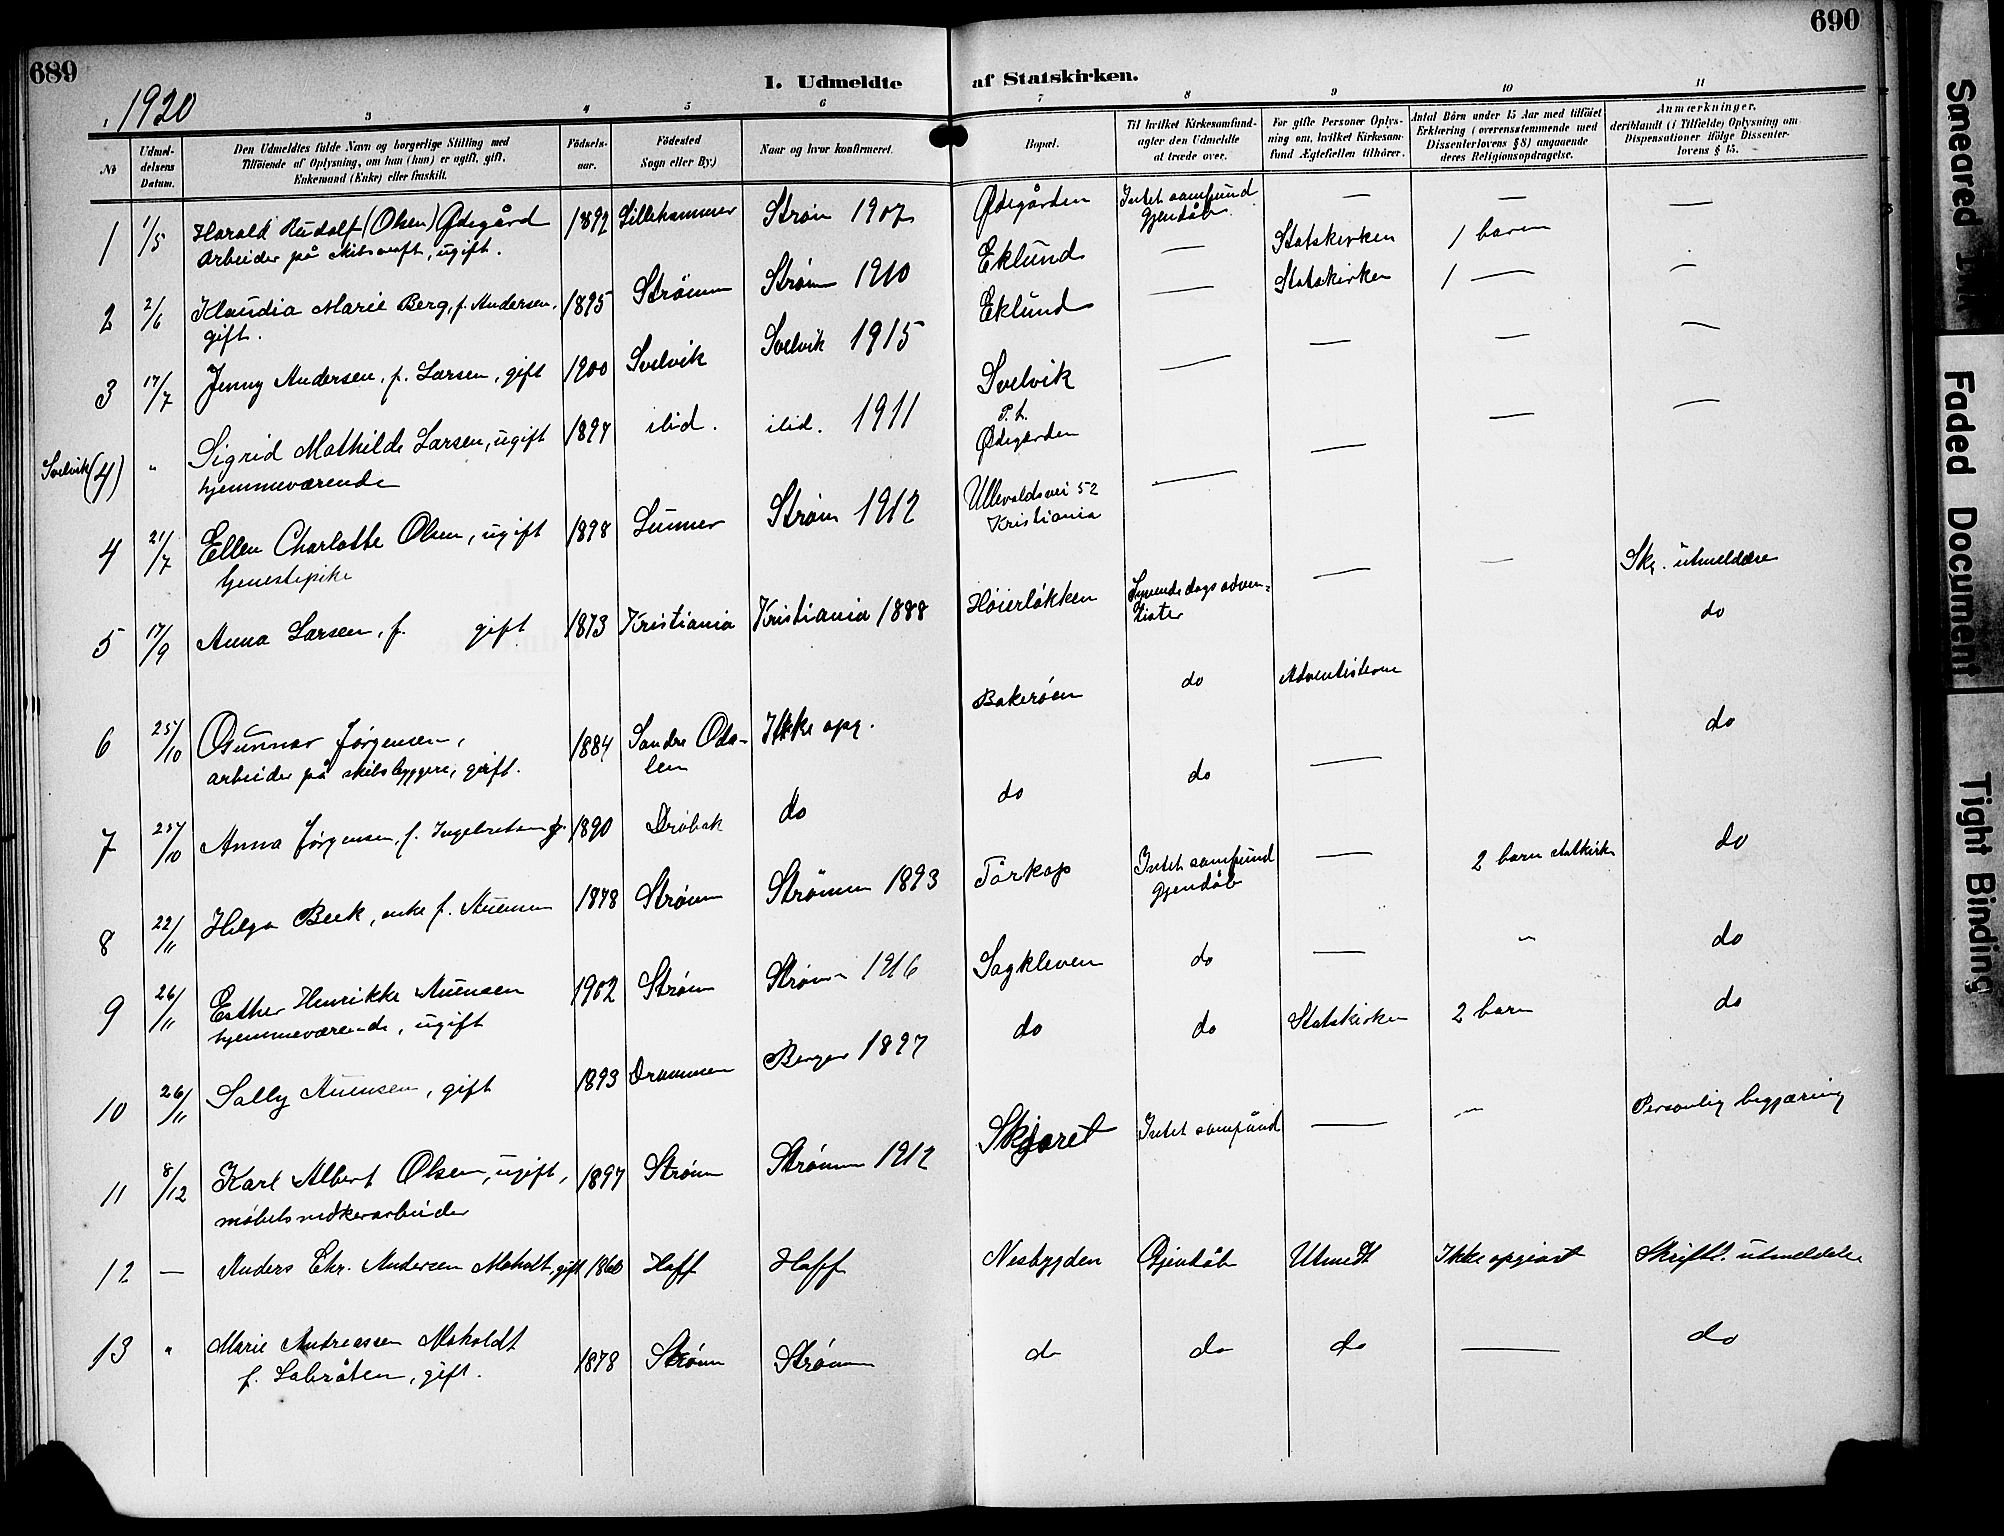 689
690
1. Udmeldte af Statskirken.
1920
3 4 5 6 7 8 9 10 11
No
Udmel-
delsens
Datum.
Den Udmeldtes fulde Navn og borgerlige Stilling med
Tilföiende af Oplysning, om han (hun) er ugift, gift,
Enkemand (Enke) eller fraskilt.
Födsels-
aar.
Födested
Sogn eller By.)
Naar og hvor konfirmeret.
Bopæl.
Til hvilket Kirkesamfund
agter den Udmeldte
at træde over.
For gifte Personer Oplys-
ning om, hvilket Kirkesam-
fund Ægtefællen tilhörer.
Antal Börn under 15 Aar med tilföiet
Erklæring (overensstemmende med
Dissenterlovens § 8) angaaende
deres Religionsopdragelse.
Anmærkninger,
deriblandt (i Tilfælde) Oplysning om
Dispensationer ifölge Dissenter-
lovens § 15.
1 1/5 Harald Rudolf (Olsen) Ødegård 1892 Lillehammer Strøm 1907 Ødegården Intet samfund — — —
arbeider på skibsverft, ugift. gjendøb.
2 2/6 Klaudia Marie Berg, f. Andersen, 1895 Strömm Strøm 1910 Eklund — Statskirken 1 barn
gift.
3 17/7 Jenny Andersen, f. Larsen, gift 1900 Svelvik Svelvik 1915 Eklund — Statskirken 1 — —
Svelvik (4) " Sigrid Mathilde Larsen, ugift 1897 ibid. ibid. 1911 Svelvik — — — —
hjemmeværende P.t.
Ødegården
4 21/7 Ellen Charlotte Olsen, ugift 1898 Lunner Strøm 1912 Ullevoldsvei 52 — — — —
tjenestepike Kristiania
5 17/9 Anna Larsen, f. gift 1873 Kristiania Kristiania 1888 Høierløkken Syvende dags adven- — — Skr. utmeldelse
tister
6 25/10 Gunnar Jørgensen, 1884 Søndre Oda- Ikke opg. Bakerøen do Adventisterne do
arbeider på skibsbyggeri, gift. len
7 25/10 Anna Jørgensen, f. Ingebretsen g. 1890 Drøbak do do do — do
8 22/11 Helga Beck, enke f. 1878 Strøm Strömm 1893 Tørkop Intet samfund — 2 barn statskirk do
gjendøb
9 26/11 Esther Henrikke 1902 Strøm Strøm 1916 Sagkleven do — " do
hjemmeværende, ugift
10 26/11 Sally gift 1893 Drammen Berger 1897 do do Statskirken 2 barn do
11 8/12 Karl Albert Olsen, ugift, 1897 Strøm Strømm 1912 Skjæret Intet samfund — — Personlig begjæring
møbelsnedkerarbeider
12 — Anders Chr. Andersen Moholt, gift 1860 Hoff Hoff Nesbygden Gjendøb Utmeldt Ikke opgivet Skriftl. utmeldelse
13 " Marie Andreassen Moholdt 1878 Strøm Strøm do do do — do
f. Sabråten, gift.
Smeared Ink
Faded Document
Tight Binding